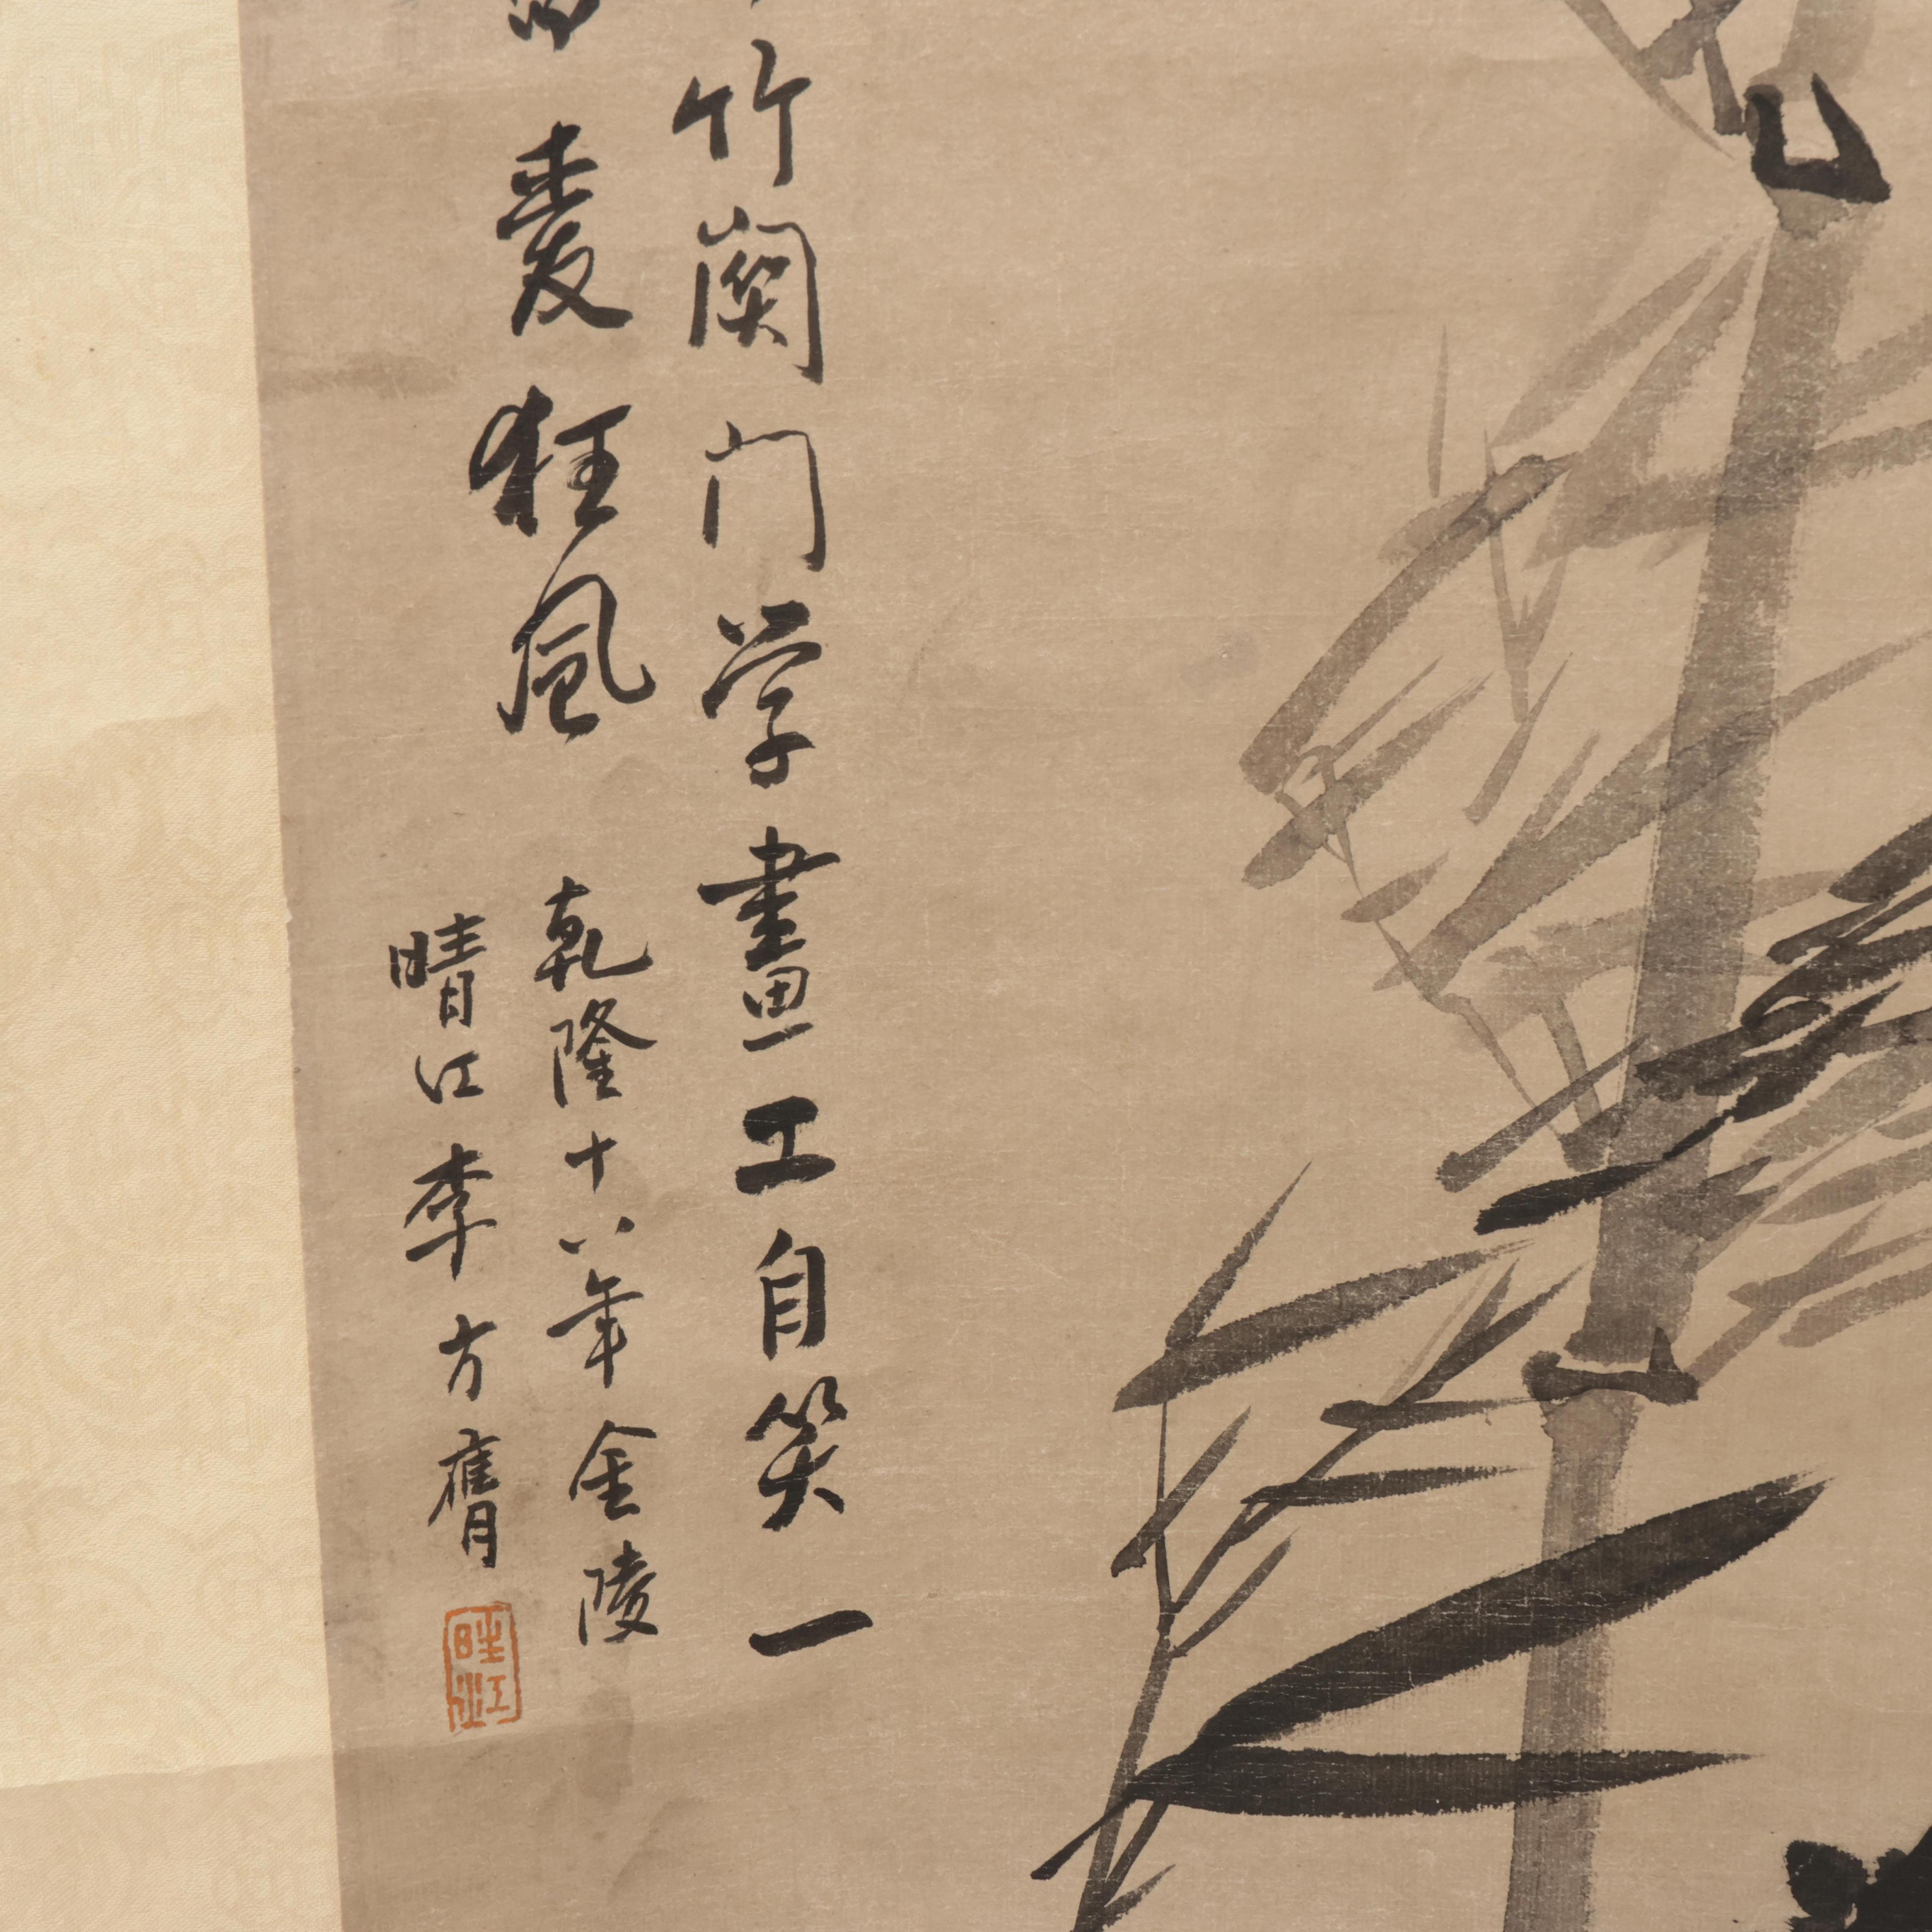 竹関门学畫工自笑一
愛狂風 乾隆十八年金陵
晴江李方膺
晴江